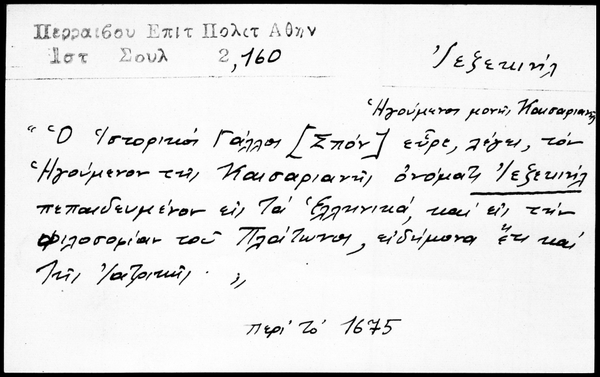 Περραιβου Επιτ Πολιτ Αθην
Ιστ Σουλ 2,160
Ἰεζεκιήλ
Ἡγούμενος μονῆς Καισαριανῆς
"Ὁ Ἱστορικός Γάλλος [Σπόν] εὗρε, λέγει, τόν
Ἡγούμενον τῆς Καισαριανῆς ὀνόματι Ἰεζεκιήλ
πεπαιδευμένον εἰς τά Ἑλληνικά, καί εἰς τήν
φιλοσοφίαν τοῦ Πλάτωνος, εἰδήμονα ἔτι καί
τῆς Ἰατρικῆς . "
περί τό 1675